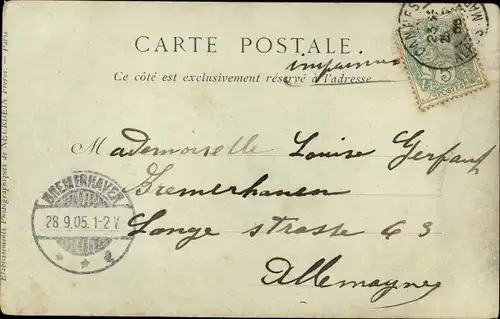 CARTE POSTALE
imprimé
Ce côté est exclusivement réservé à l'adresse
Mademoiselle Louise Gerfaut
Bremerhaven
Lange strasse 63
Allemagne
BREMERHAVEN
28.9.05.1-2 V.
Etablissements Photographiques de NEURDEIN Frères. — Paris
CANNES